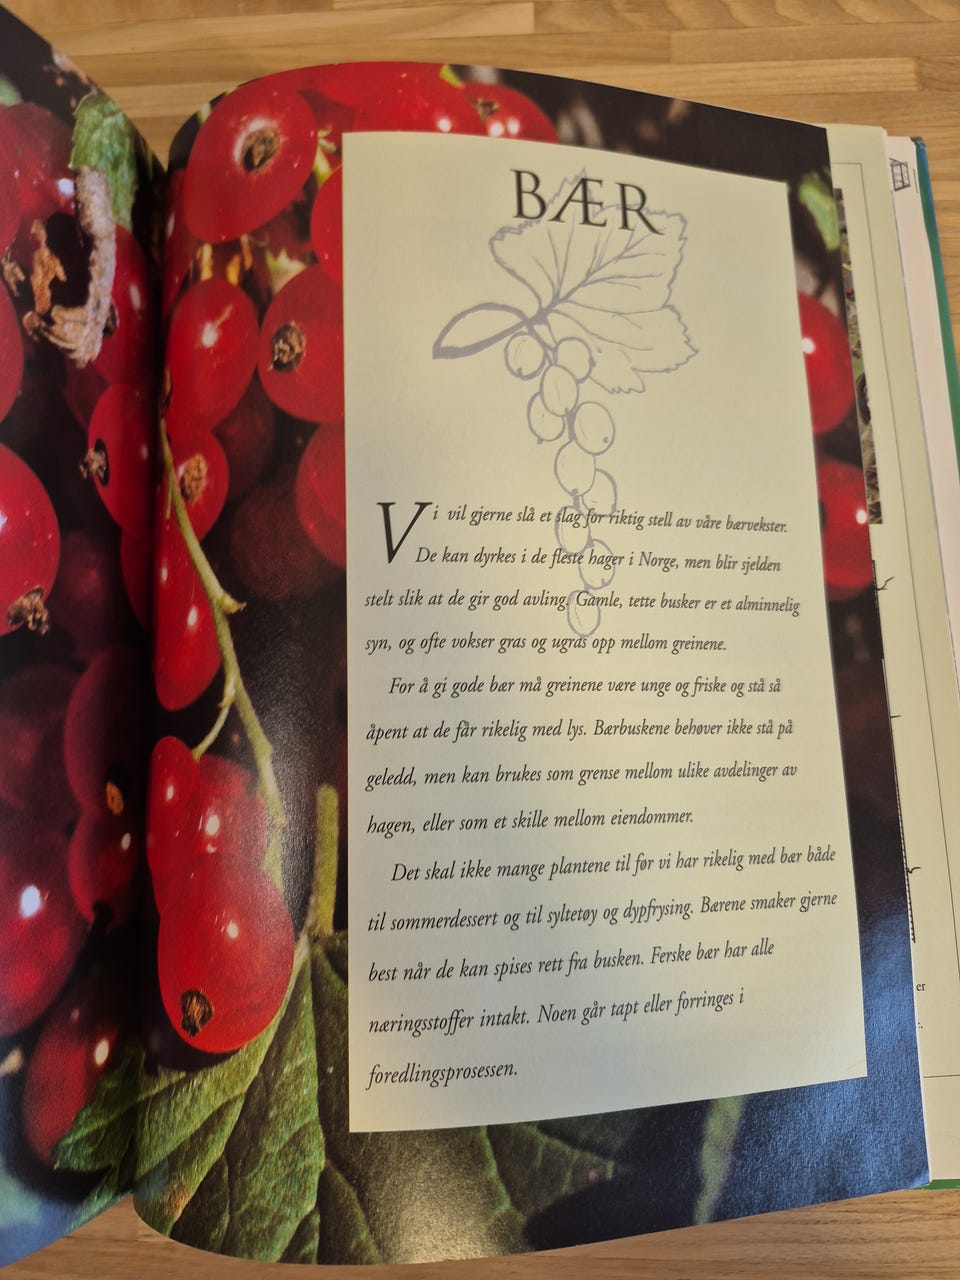 BÆR
Vi vil gjerne slå et slag for riktig stell av våre bærvekster.
De kan dyrkes i de fleste hager i Norge, men blir sjelden
stelt slik at de gir god avling. Gamle, tette busker er et alminnelig
syn, og ofte vokser gras og ugras opp mellom greinene.
For å gi gode bær må greinene være unge og friske og stå så
åpent at de får rikelig med lys. Bærbuskene behøver ikke stå på
geledd, men kan brukes som grense mellom ulike avdelinger av
hagen, eller som et skille mellom eiendommer.
Det skal ikke mange plantene til før vi har rikelig med bær både
til sommerdessert og til syltetøy og dypfrysing. Bærene smaker gjerne
best når de kan spises rett fra busken. Ferske bær har alle
næringsstoffer intakt. Noen går tapt eller forringes i
foredlingsprosessen.
er